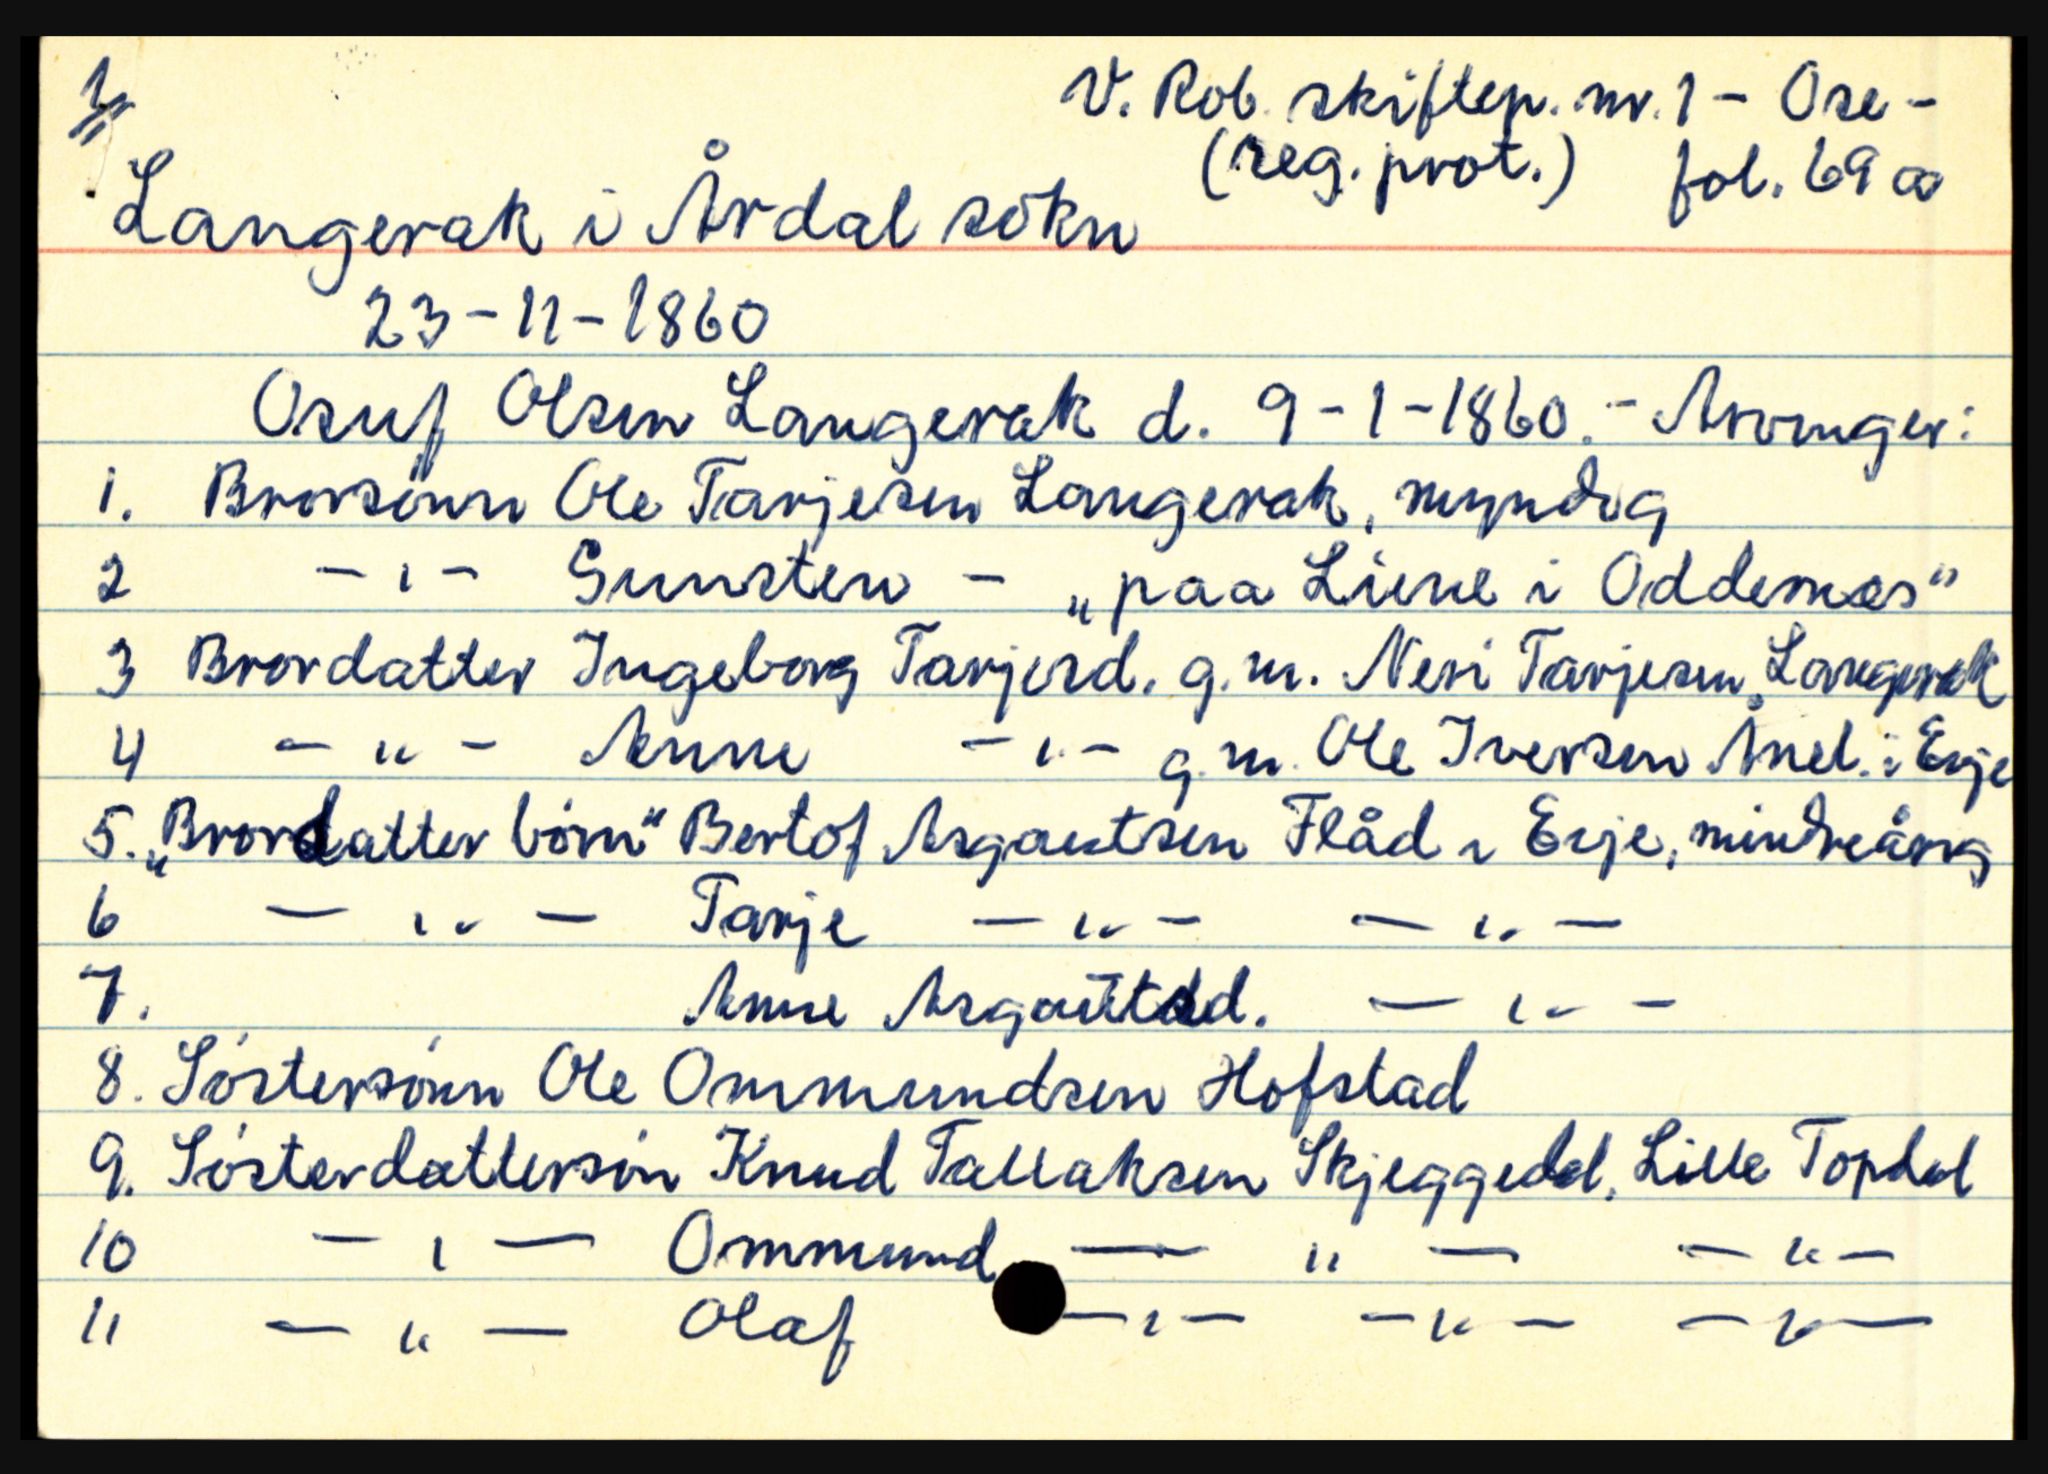 1
V. Rob. skiftep. nr. 1 - Ose -
(reg. prot.) fol. 69 a
Langerak i Årdal sokn
23-11-1860
Osuf Olsen Langerak d. 9-1-1860. - Arvinger:
1. Brorsönn Ole Tarjesen Langerak, myndig
2 - " - Gunsten - „paa Liene i Oddernæs"
3 Brordatter Ingeborg Tarjesd. g.m. Neri Tarjesen Langerak
4 - " - Anne - " - g.m. Ole Iversen Ånel. i Evje
5. „Brordatter börn" Bertof Asgautsen Flåd i Evje, mindreårig
6 - " - Tarje - " - - " -
7. Anne Asgautsd. - " -
8. Söstersönn Ole Ommundsen Hofstad
9. Sösterdattersön Knud Tallaksen Skjeggedal, Lille Topdal
10 - " - Ommund - " - - " -
11 - " - Olaf - " - - " - - " -